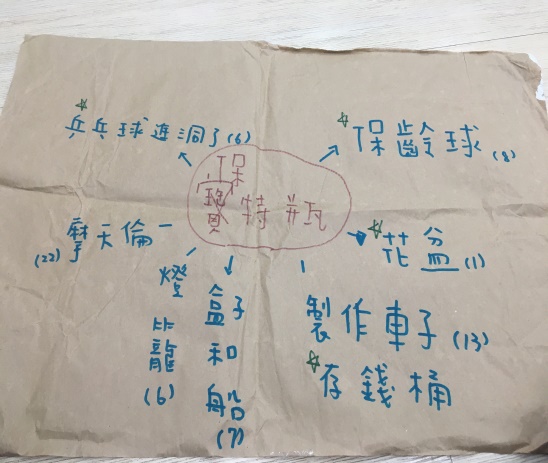 乒乓球進洞了(6)
保齡球(8)
保寶特瓶
摩天倫(22)
花盆(1)
燈籠(6)
盒子和船(7)
製作車子(13)
存錢桶